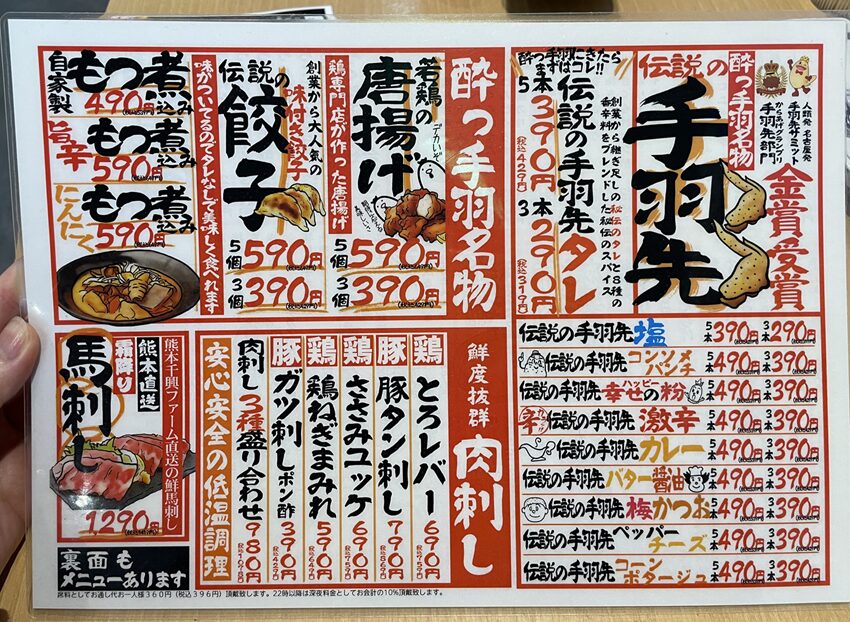 人類発 名古屋発
手羽先サミット
からあげグランプリ
手羽先部門
金賞受賞
酔っ手羽名物
伝説の
手羽先
創業から継ぎ足しの秘伝のタレと8種の
香辛料をブレンドした秘伝のスパイス
伝説の手羽先タレ
5本390円
(税込429円)
3本290円
(税込319円)
伝説の手羽先塩 5本390円 3本290円
伝説の手羽先コンソメパンチ 5本490円 3本390円
伝説の手羽先幸せの粉 5本490円 3本390円
ハッピー
伝説の手羽先激辛 5本490円 3本390円
伝説の手羽先カレー 5本490円 3本390円
伝説の手羽先バター醤油 5本490円 3本390円
伝説の手羽先梅かつお 5本490円 3本390円
伝説の手羽先ペッパーチーズ 5本490円 3本390円
伝説の手羽先コーンポタージュ 5本490円 3本390円
酔っ手羽名物
若鶏の
唐揚げ
デカいぞ
鶏専門店が作った唐揚げ
5個590円
3個390円
創業から大人気の
味付き餃子
伝説の
餃子
味がついてるのでタレなしで美味しく食べれます
5個590円
3個390円
自家製
もつ煮込み
490円
旨辛
もつ煮込み
590円
にんにく
もつ煮込み
590円
鮮度抜群
肉刺し
鶏 とろレバー 690円
(税込759円)
豚 豚タン刺し 790円
(税込869円)
鶏 ささみユッケ 690円
(税込759円)
鶏 鶏ねぎまみれ 590円
(税込649円)
豚 ガツ刺しポン酢 390円
(税込429円)
肉刺し3種盛り合わせ 980円
(税込1078円)
安心安全の低温調理
熊本千興ファーム直送の鮮馬刺し
熊本直送
霜降り
馬刺し
1290円
裏面も
メニューあります
席料としてお通し代お一人様360円(税込396円)頂戴致します。22時以降は深夜料金としてお会計の10%頂戴致します。